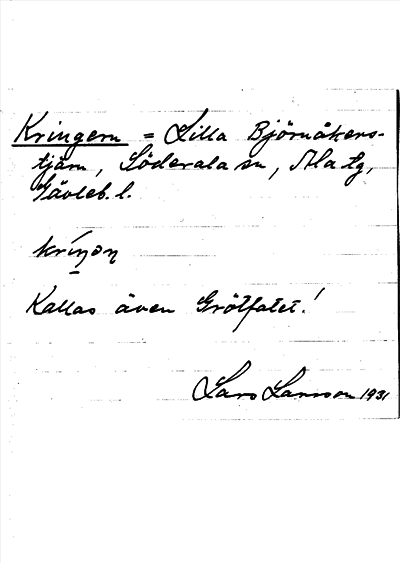 Kringern = Lilla Björnåkers-
tjärn, Söderala sn, Ala tg,
Gävleb. l.
kríŋəŋ
Kallas även Grötfatet!
Lars Larsson 1931